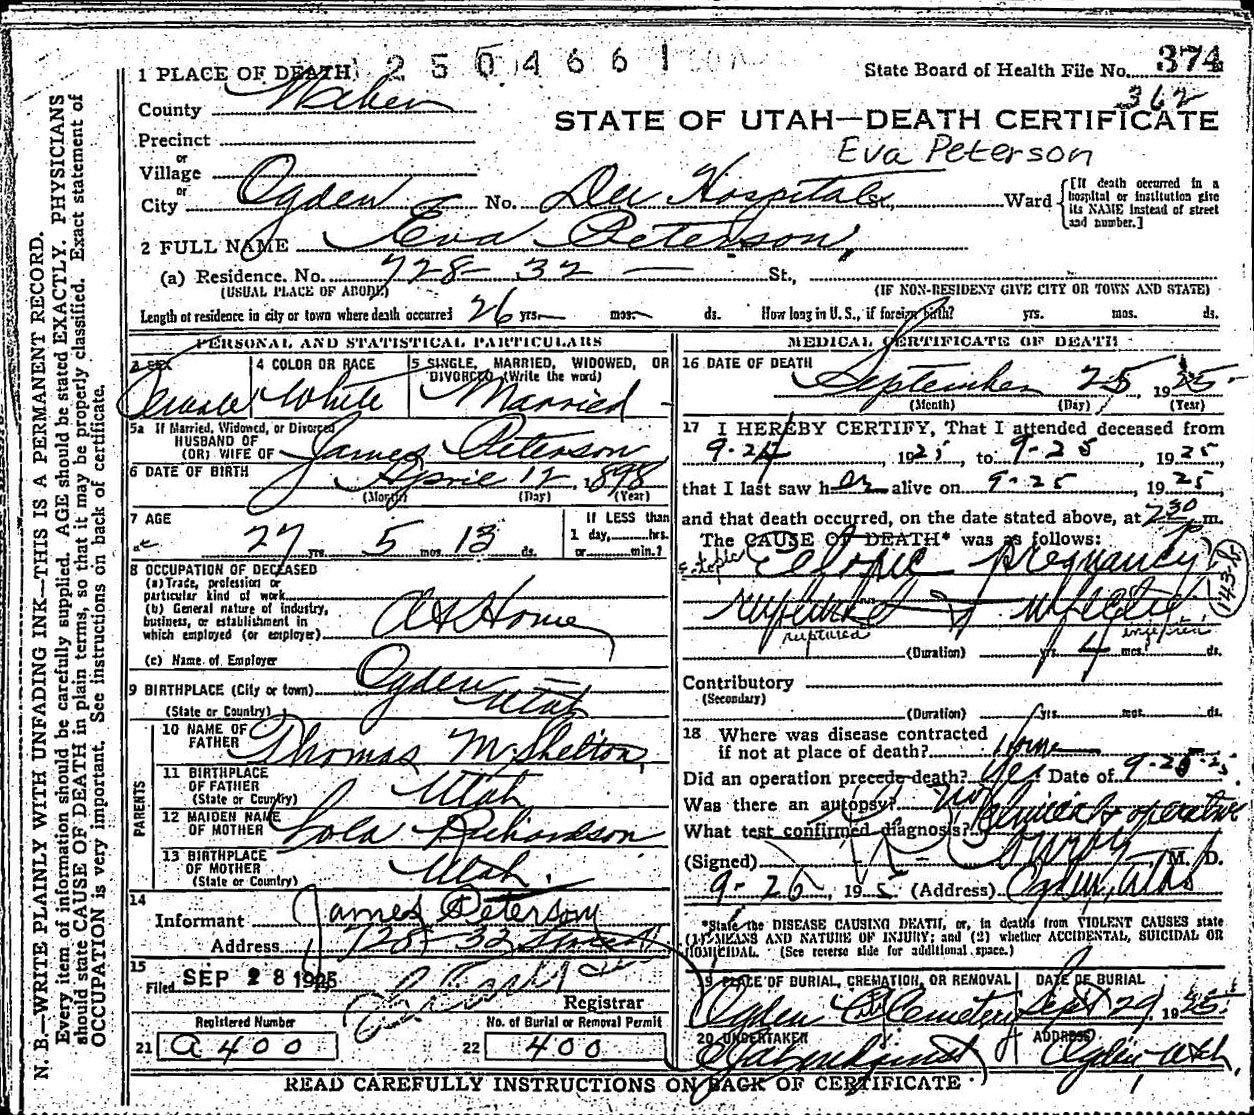 1 PLACE OF DEATH 2 5 0 4 6 6 1
State Board of Health File No. 374
362
County Weber
STATE OF UTAH—DEATH CERTIFICATE
Eva Peterson
Precinct
or
Village
or
City Ogden No. Dee Hospital St., Ward
[If death occurred in a hospital or institution give its NAME instead of street and number.]
2 FULL NAME Eva Peterson
(a) Residence. No. 728 - 32 — St.,
(USUAL PLACE OF ABODE) (IF NON-RESIDENT GIVE CITY OR TOWN AND STATE)
Length of residence in city or town where death occurred 26 yrs. mos. ds. How long in U. S., if foreign birth? yrs. mos. ds.
PERSONAL AND STATISTICAL PARTICULARS
3 SEX Female
4 COLOR OR RACE White
5 SINGLE, MARRIED, WIDOWED, OR DIVORCED (Write the word) Married
5a If Married, Widowed, or Divorced
HUSBAND OF
(OR) WIFE OF James Peterson
6 DATE OF BIRTH April 12, 1898
(Month) (Day) (Year)
7 AGE 27 yrs. 5 mos. 13 ds.
If LESS than 1 day, hrs. or min.?
8 OCCUPATION OF DECEASED
(a) Trade, profession or particular kind of work
(b) General nature of industry, business, or establishment in which employed (or employer) At Home
(c) Name of Employer
9 BIRTHPLACE (City or town) Ogden
(State or Country) Utah
PARENTS
10 NAME OF FATHER Thomas M. Shelton
11 BIRTHPLACE OF FATHER (State or Country) Utah
12 MAIDEN NAME OF MOTHER Lola Richardson
13 BIRTHPLACE OF MOTHER (State or Country) Utah.
14
Informant James Peterson
Address 728 - 32 Street
15
Filed SEP 28 1925
Registrar
Registered Number
21 a 400
No. of Burial or Removal Permit
22 400
MEDICAL CERTIFICATE OF DEATH
16 DATE OF DEATH September 25, 1925
(Month) (Day) (Year)
17 I HEREBY CERTIFY, That I attended deceased from
9-24, 1925, to 9-25, 1925,
that I last saw her alive on 9-25, 1925,
and that death occurred, on the date stated above, at 7 30 p m.
The CAUSE OF DEATH* was as follows:
ectopic Ectopic pregnancy
143-b
ruptured
(Duration) yrs. 4 mos. ds.
Contributory
(Secondary)
(Duration) yrs. mos. ds.
18 Where was disease contracted
if not at place of death? Home
Did an operation precede death? Yes Date of 9-25-25
Was there an autopsy? no
What test confirmed diagnosis? Clinical & operative
(Signed) M. D.
9-26, 1925 (Address) Ogden, Utah
*State the DISEASE CAUSING DEATH, or, in deaths from VIOLENT CAUSES state
(1) MEANS AND NATURE OF INJURY; and (2) whether ACCIDENTAL, SUICIDAL OR
HOMICIDAL. (See reverse side for additional space.)
19 PLACE OF BURIAL, CREMATION, OR REMOVAL Ogden City Cemetery
DATE OF BURIAL Sept 29, 1925
20 UNDERTAKER
ADDRESS Ogden Utah
READ CAREFULLY INSTRUCTIONS ON BACK OF CERTIFICATE
N. B.—WRITE PLAINLY WITH UNFADING INK—THIS IS A PERMANENT RECORD.
Every item of information should be carefully supplied. AGE should be stated EXACTLY. PHYSICIANS
should state CAUSE OF DEATH in plain terms, so that it may be properly classified. Exact statement of
OCCUPATION is very important. See instructions on back of certificate.